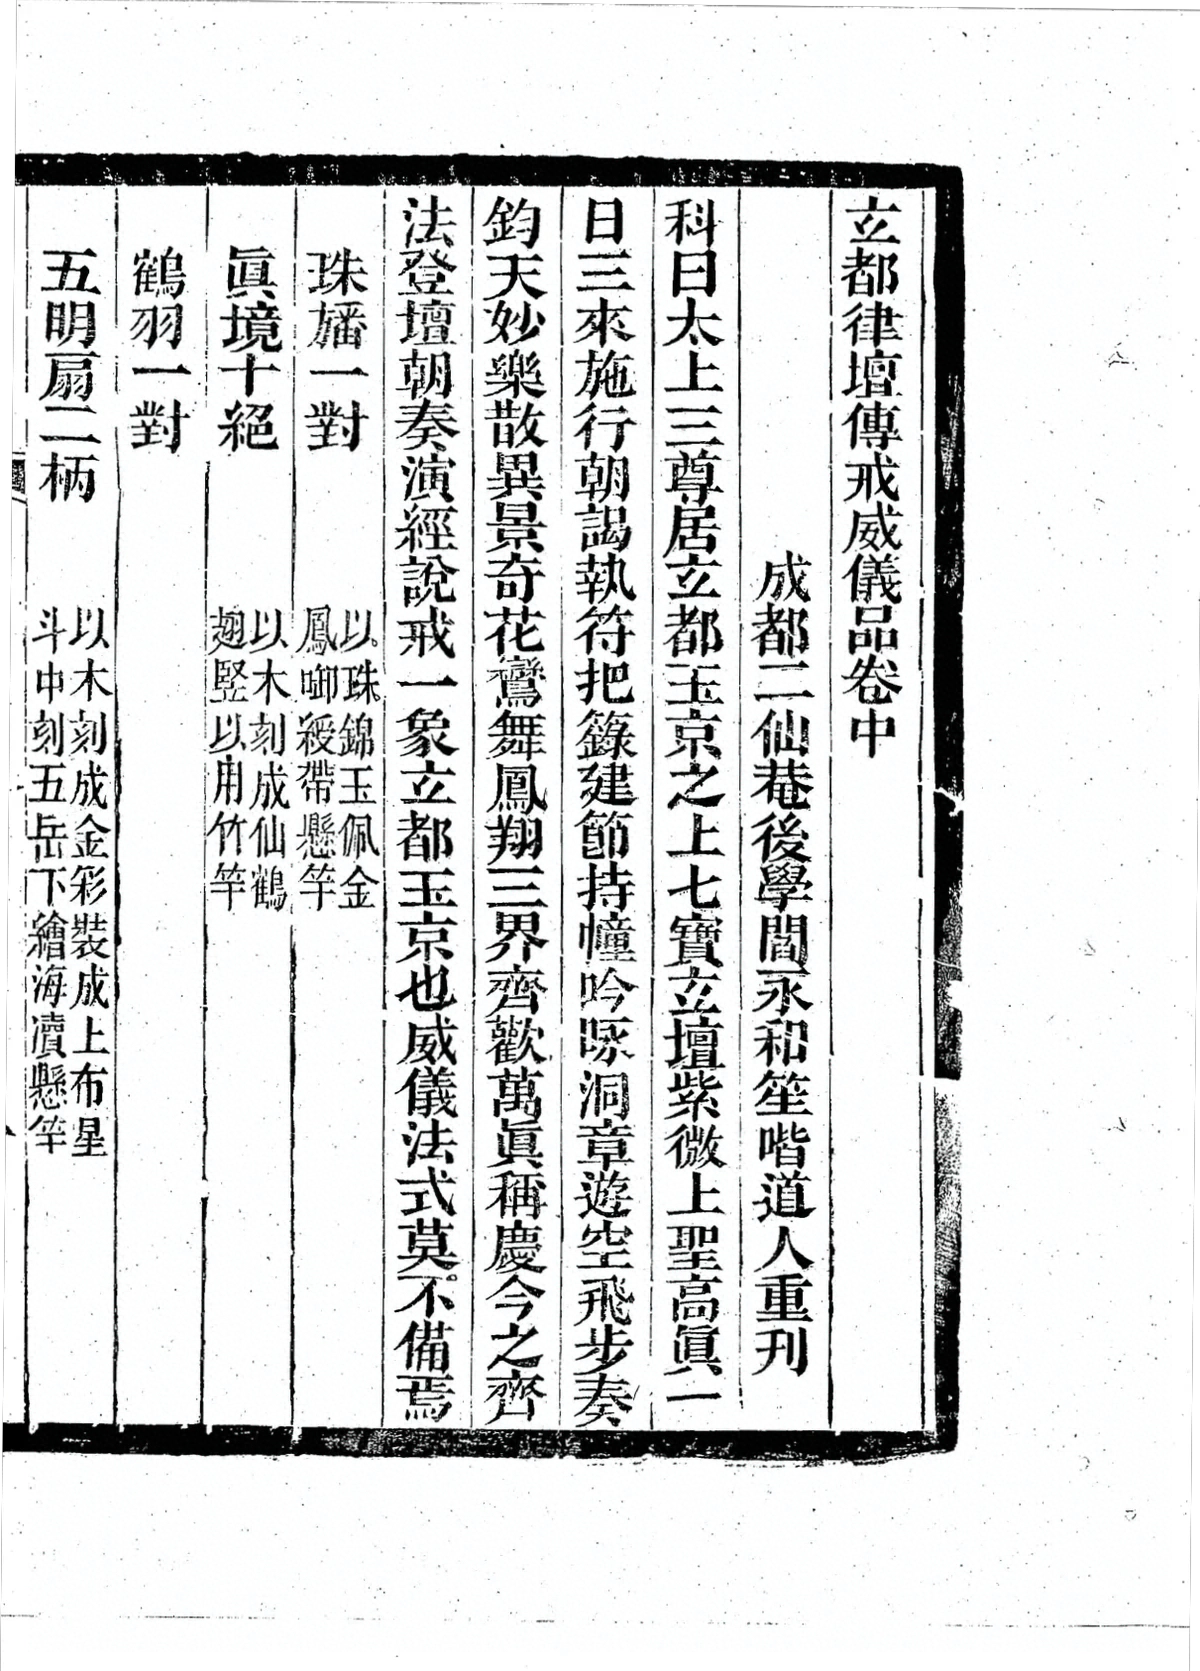 立都律壇傳戒威儀品卷中
成都二仙菴後學閻永和笙喈道人重刊
科曰太上三尊居立都玉京之上七寶立壇紫微上聖高眞一
日三來施行朝謁執符把籙建節持幢吟咏洞章遊空飛步奏
鈞天妙樂散異景奇花鸞舞鳳翔三界齊歡萬眞稱慶今之齊
法登壇朝奏演經說戒一象立都玉京也威儀法式莫不備焉
珠旛一對
以珠錦玉佩金
鳳啣綬帶懸竿
眞境十絕
以木刻成仙鶴
翅竪以用竹竿
鶴羽一對
五明扇二柄
以木刻成金彩裝成上布星
斗中刻五岳下繪海瀆懸竿